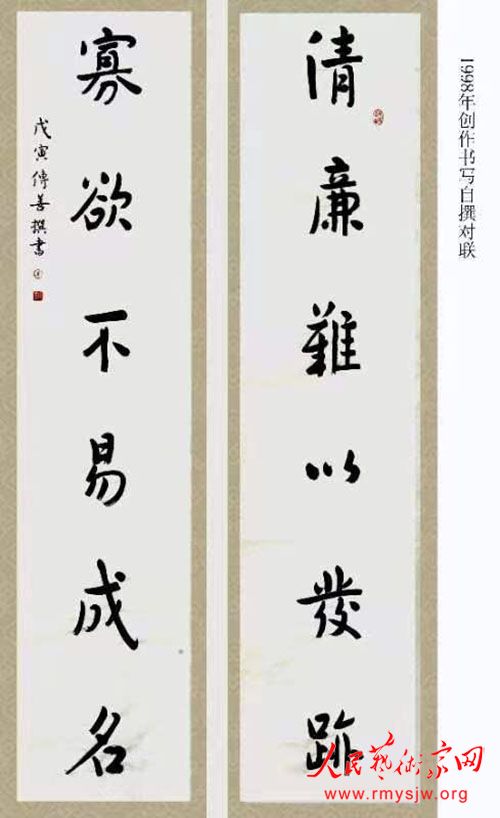 1998年创作书写自撰对联
清廉難以發跡
寡欲不易成名
戊寅傳善撰書
人民藝術家网
www.rmysjw.org